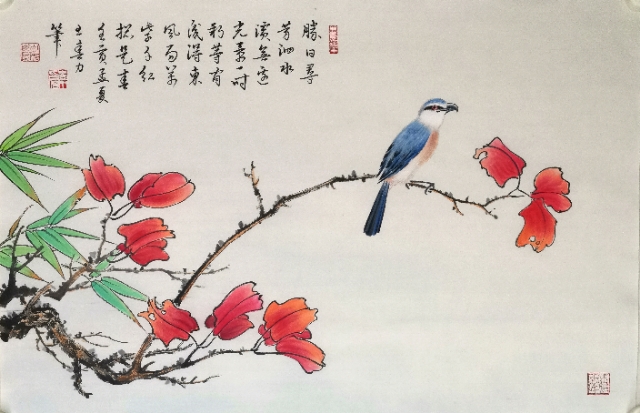 勝日尋
芳泗水
濱無邊
光景一時
新等閒
識得東
風面萬
紫千紅
總是春
孟夏
筆